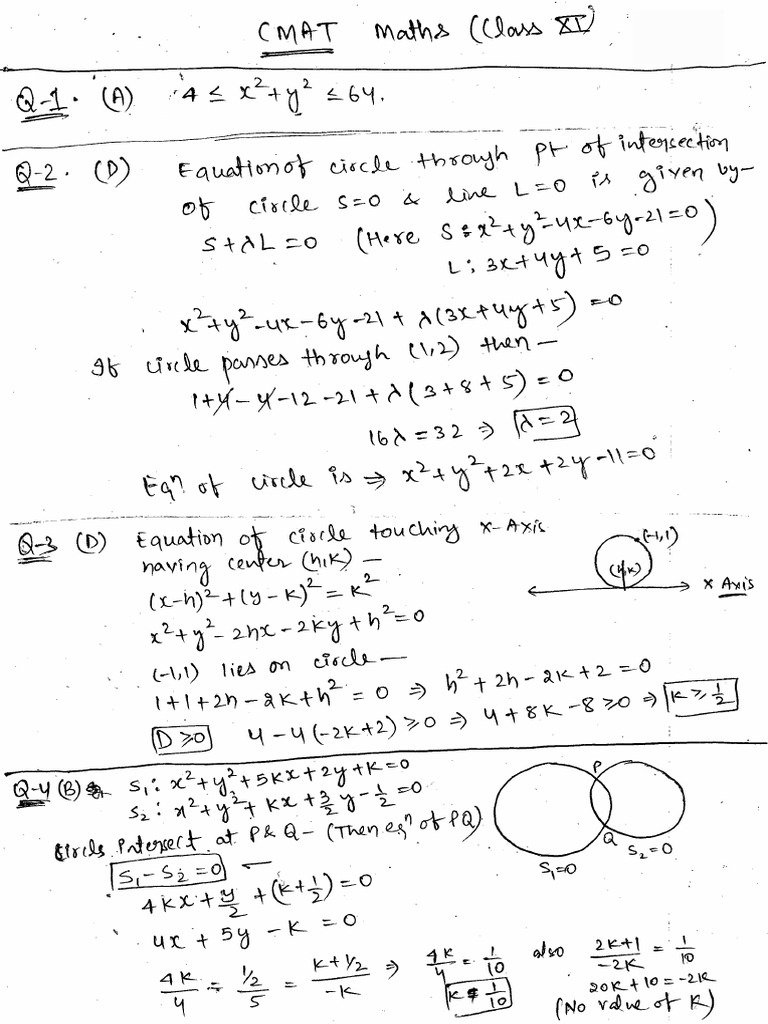 CMAT Maths (Class XI)
Q-1. (A) 4 ≤ x²+y² ≤ 64.
Q-2. (D) Equation of circle through pt of intersection
of circle S=0 & line L=0 is given by—
S+λL=0 (Here S: x²+y²-4x-6y-21=0)
L: 3x+4y+5=0
x²+y²-4x-6y-21+λ(3x+4y+5)=0
If circle passes through (1,2) then —
1+4-4-12-21+λ(3+8+5)=0
16λ=32 ⇒ λ=2
Eqn of circle is ⇒ x²+y²+2x+2y-11=0
Q-3 (D) Equation of circle touching x-Axis
having center (h,k) —
(x-h)²+(y-k)²=k²
x²+y²-2hx-2ky+h²=0
(-1,1) lies on circle —
1+1+2h-2k+h²=0 ⇒ h²+2h-2k+2=0
D≥0 4-4(-2k+2)≥0 ⇒ 4+8k-8≥0 ⇒ k≥1/2
(-1,1)
(h,k)
x Axis
Q-4 (B) S₁: x²+y²+5kx+2y+k=0
S₂: x²+y²+kx+3/2y-1/2=0
Circls Intersect at P & Q - (Then eqn of PQ)
S₁-S₂=0 —
4kx+y/2+(k+1/2)=0
4x+5y-k=0
4k/4 = (1/2)/5 = (k+1/2)/-k ⇒ 4k/4 = 1/10 also (2k+1)/-2k = 1/10
k=1/10 20k+10=-2k
(No value of k)
P
Q
S₁=0
S₂=0